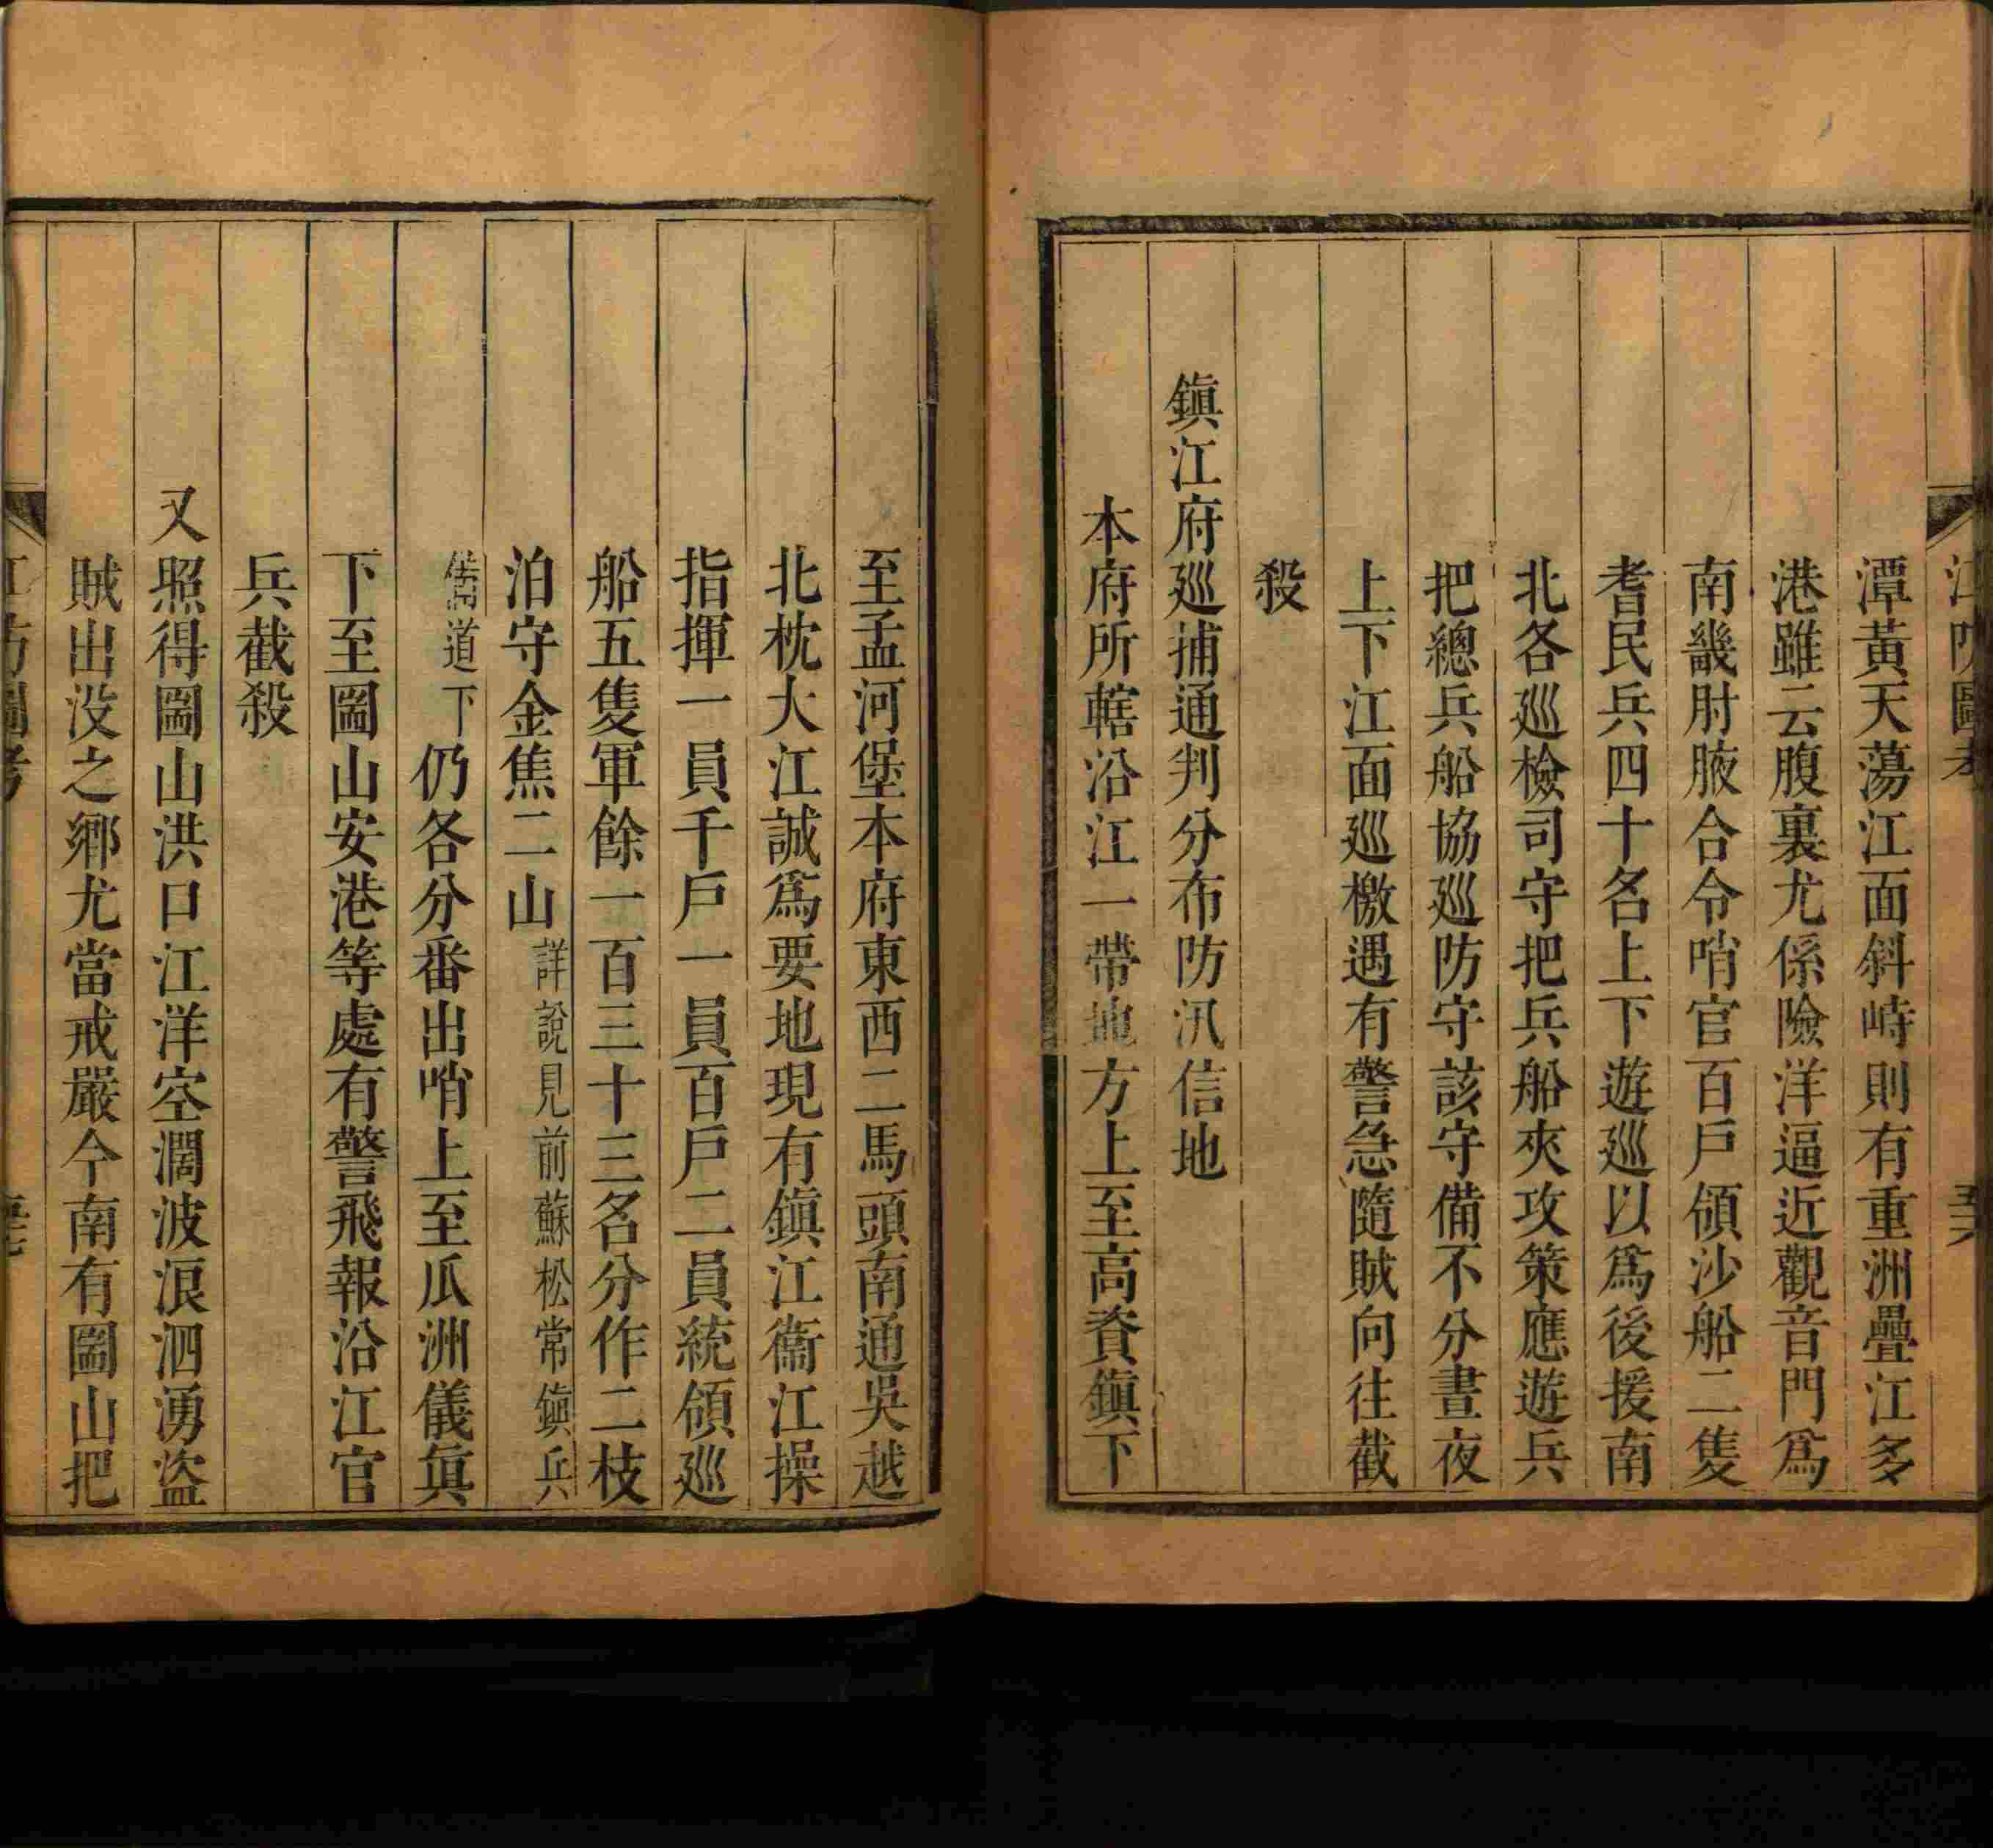 江防圖考
潭黃天蕩江面斜峙則有重洲疊江多
港雖云腹裏尤係險洋逼近觀音門爲
南畿肘腋合令哨官百戶領沙船二隻
耆民兵四十名上下遊巡以爲後援南
北各巡檢司守把兵船夾攻策應遊兵
把總兵船協巡防守該守備不分晝夜
上下江面巡檄遇有警急隨賊向往截
殺
鎭江府巡捕通判分布防汛信地
本府所轄沿江一帶地方上至高資鎭下
至孟河堡本府東西二馬頭南通吳越
北枕大江誠爲要地現有鎭江衞江操
指揮一員千戶一員百戶二員統領巡
船五隻軍餘一百三十三名分作二枝
泊守金焦二山詳說見前蘇松常鎭兵
備道下仍各分番出哨上至瓜洲儀眞
下至圌山安港等處有警飛報沿江官
兵截殺
又照得圌山洪口江洋空濶波浪泗湧盜
賊出没之鄉尤當戒嚴今南有圌山把
江防圖考